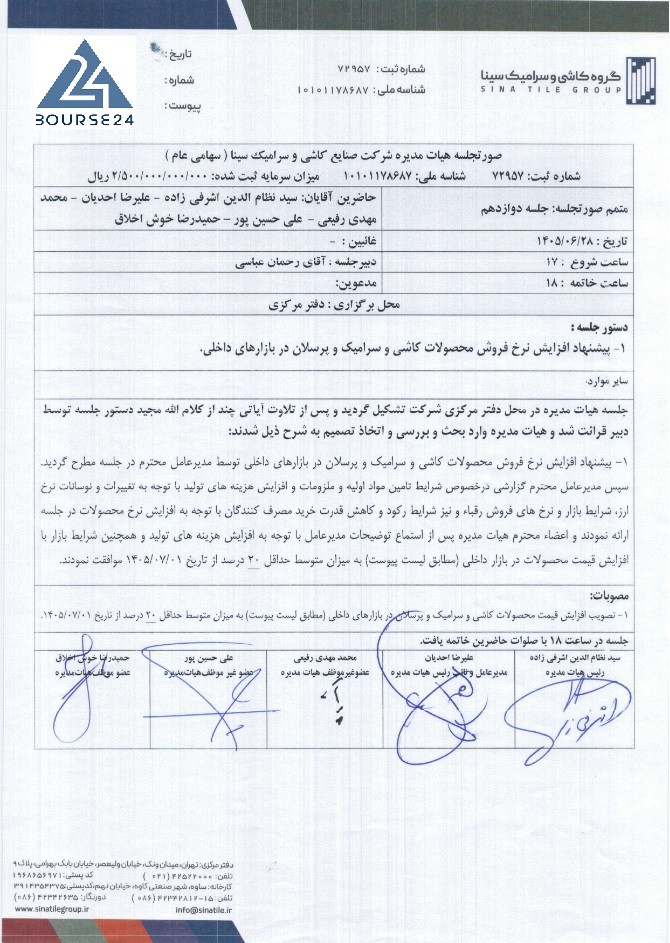 BOURSE24
تاریخ :
شماره :
پیوست :
شماره ثبت : ۷۲۹۵۷
شناسه ملی : ۱۰۱۰۱۱۷۸۶۸۷
گروه کاشی و سرامیک سینا
SINA TILE GROUP
صورتجلسه هیات مدیره شرکت صنایع کاشی و سرامیک سینا ( سهامی عام )
شماره ثبت: ۷۲۹۵۷ شناسه ملی: ۱۰۱۰۱۱۷۸۶۸۷ میزان سرمایه ثبت شده: ۲/۵۰۰/۰۰۰/۰۰۰/۰۰۰ ریال
متمم صورتجلسه: جلسه دوازدهم
حاضرین آقایان: سید نظام الدین اشرفی زاده – علیرضا احدیان – محمد
مهدی رفیعی – علی حسین پور – حمیدرضا خوش اخلاق
تاریخ : ۱۴۰۵/۰۶/۲۸
غائبین : -
ساعت شروع : ۱۷
دبیرجلسه : آقای رحمان عباسی
ساعت خاتمه : ۱۸
مدعوین:
محل برگزاری : دفتر مرکزی
دستور جلسه :
۱- پیشنهاد افزایش نرخ فروش محصولات کاشی و سرامیک و پرسلان در بازارهای داخلی.
سایر موارد:
جلسه هیات مدیره در محل دفتر مرکزی شرکت تشکیل گردید و پس از تلاوت آیاتی چند از کلام الله مجید دستور جلسه توسط
دبیر قرائت شد و هیات مدیره وارد بحث و بررسی و اتخاذ تصمیم به شرح ذیل شدند:
۱- پیشنهاد افزایش نرخ فروش محصولات کاشی و سرامیک و پرسلان در بازارهای داخلی توسط مدیرعامل محترم در جلسه مطرح گردید.
سپس مدیرعامل محترم گزارشی درخصوص شرایط تامین مواد اولیه و ملزومات و افزایش هزینه های تولید با توجه به تغییرات و نوسانات نرخ
ارز، شرایط بازار و نرخ های فروش رقباء و نیز شرایط رکود و کاهش قدرت خرید مصرف کنندگان با توجه به افزایش نرخ محصولات در جلسه
ارائه نمودند و اعضاء محترم هیات مدیره پس از استماع توضیحات مدیرعامل با توجه به افزایش هزینه های تولید و همچنین شرایط بازار با
افزایش قیمت محصولات در بازار داخلی (مطابق لیست پیوست) به میزان متوسط حداقل ۲۰ درصد از تاریخ ۱۴۰۵/۰۷/۰۱ موافقت نمودند.
مصوبات:
۱- تصویب افزایش قیمت محصولات کاشی و سرامیک و پرسلان در بازارهای داخلی (مطابق لیست پیوست) به میزان متوسط حداقل ۲۰ درصد از تاریخ ۱۴۰۵/۰۷/۰۱.
جلسه در ساعت ۱۸ با صلوات حاضرین خاتمه یافت.
سید نظام الدین اشرفی زاده
رئیس هیات مدیره
علیرضا احدیان
مدیرعامل و نائب رئیس هیات مدیره
محمد مهدی رفیعی
عضو غیرموظف هیات مدیره
علی حسین پور
عضو غیر موظف هیات مدیره
حمیدرضا خوش اخلاق
عضو موظف هیات مدیره
دفتر مرکزی: تهران، میدان ونک، خیابان ولیعصر، خیابان بابک بهرامی، پلاک ۹
تلفن : ۴۲۵۲۲۰۰۰ (۰۲۱) کد پستی: ۱۹۶۸۶۵۶۹۷۱
کارخانه : ساوه، شهر صنعتی کاوه، خیابان نهم، کدپستی: ۳۹۱۴۳۵۴۳۷۵
تلفن : ۱۵-۴۲۳۴۲۸۱۲ (۰۸۶) دورنگار: ۴۲۳۴۲۶۳۵ (۰۸۶)
www.sinatilegroup.ir info@sinatile.ir